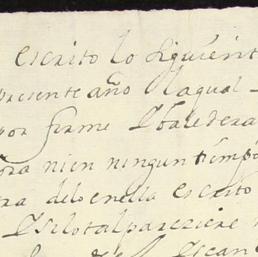 escrito lo siguient
presente año laqual
por firme Ybaledera
ora nien ningun tiempo
ra deloenella escrito
Ysilotalpareziere